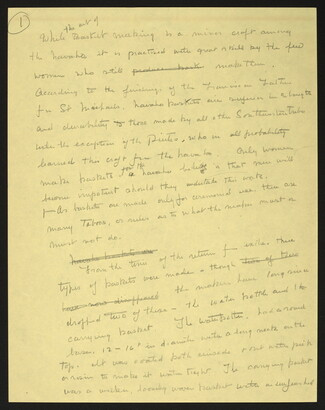 1
the art of
While basket making is a minor craft among
the Navaho it is practiced with great skill by the few
women who still make them.
According to the findings of the Franciscan Fathers
St Michaels, navaho baskets are superior in strength
and durability to those made by all other Southwestern tribes
with the exception of the Pintes, who in all probability
learned this craft from the navaho. Only women
make baskets, the navaho being that men will
become impotent should they undertake the work.
baskets are made only for ceremonial use, there are
many taboos, or rules as to what the maker must or
must not do.
From the time of the return from exile, three
types of baskets were made, though
the makers have long since
dropped two of these – the water bottle and the
carrying basket. The water bottle had a round
base, 12-16" in diameter with a long neck on the
top. It was coated both inside & out with pitch
or rosin to make it water tight. The carrying basket
was a wicker, loosely woven basket with a